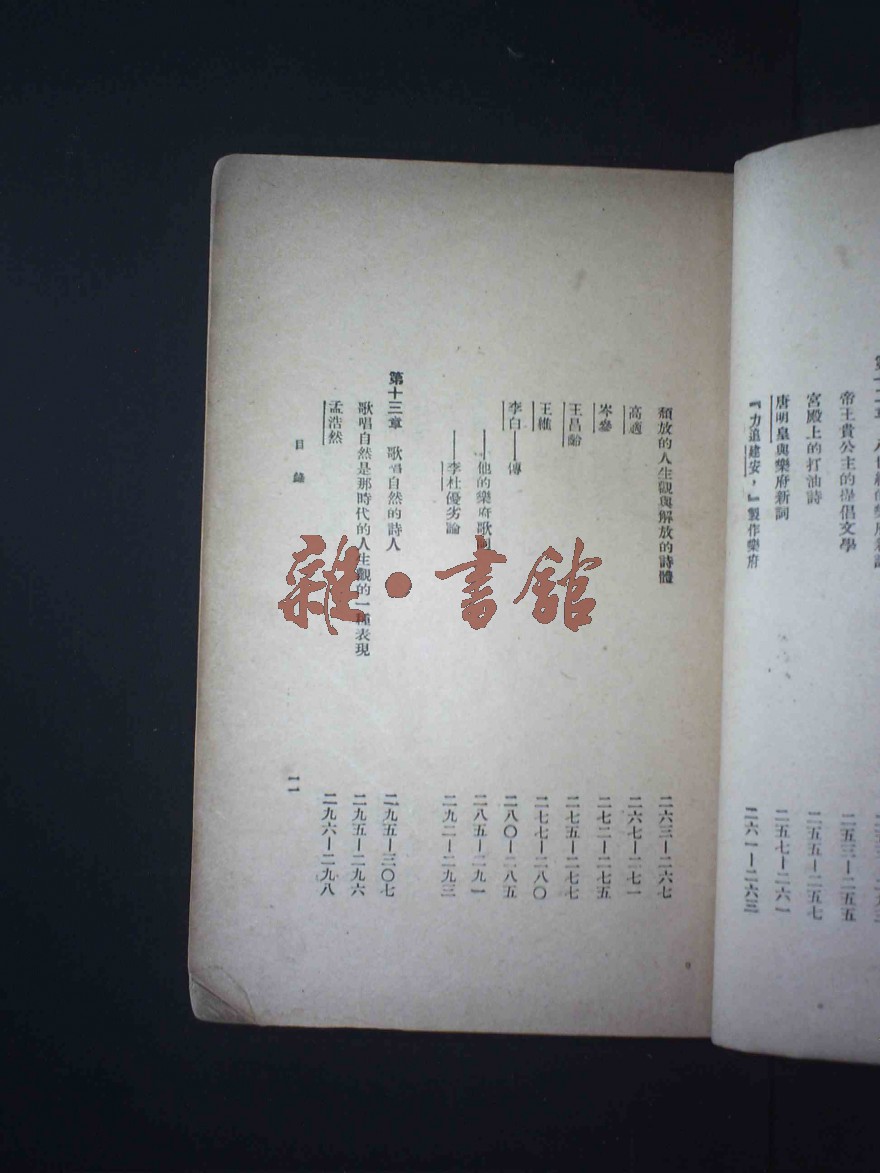 帝王貴公主的提倡文學
二五三—二五五
宮殿上的打油詩
二五五—二五七
唐明皇與樂府新詞
二五七—二六一
『力追建安，』製作樂府
二六一—二六三
頹放的人生觀與解放的詩體
二六三—二六七
高適
二六七—二七一
岑參
二七二—二七五
王昌齡
二七五—二七七
王維
二七七—二八〇
李白——傳
二八〇—二八五
——他的樂府歌詞
二八五—二九一
——李杜優劣論
二九二—二九三
第十三章 歌唱自然的詩人
二九五—三〇七
歌唱自然是那時代的人生觀的一種表現
二九五—二九六
孟浩然
二九六—二九八
目錄
一一
雜·書館